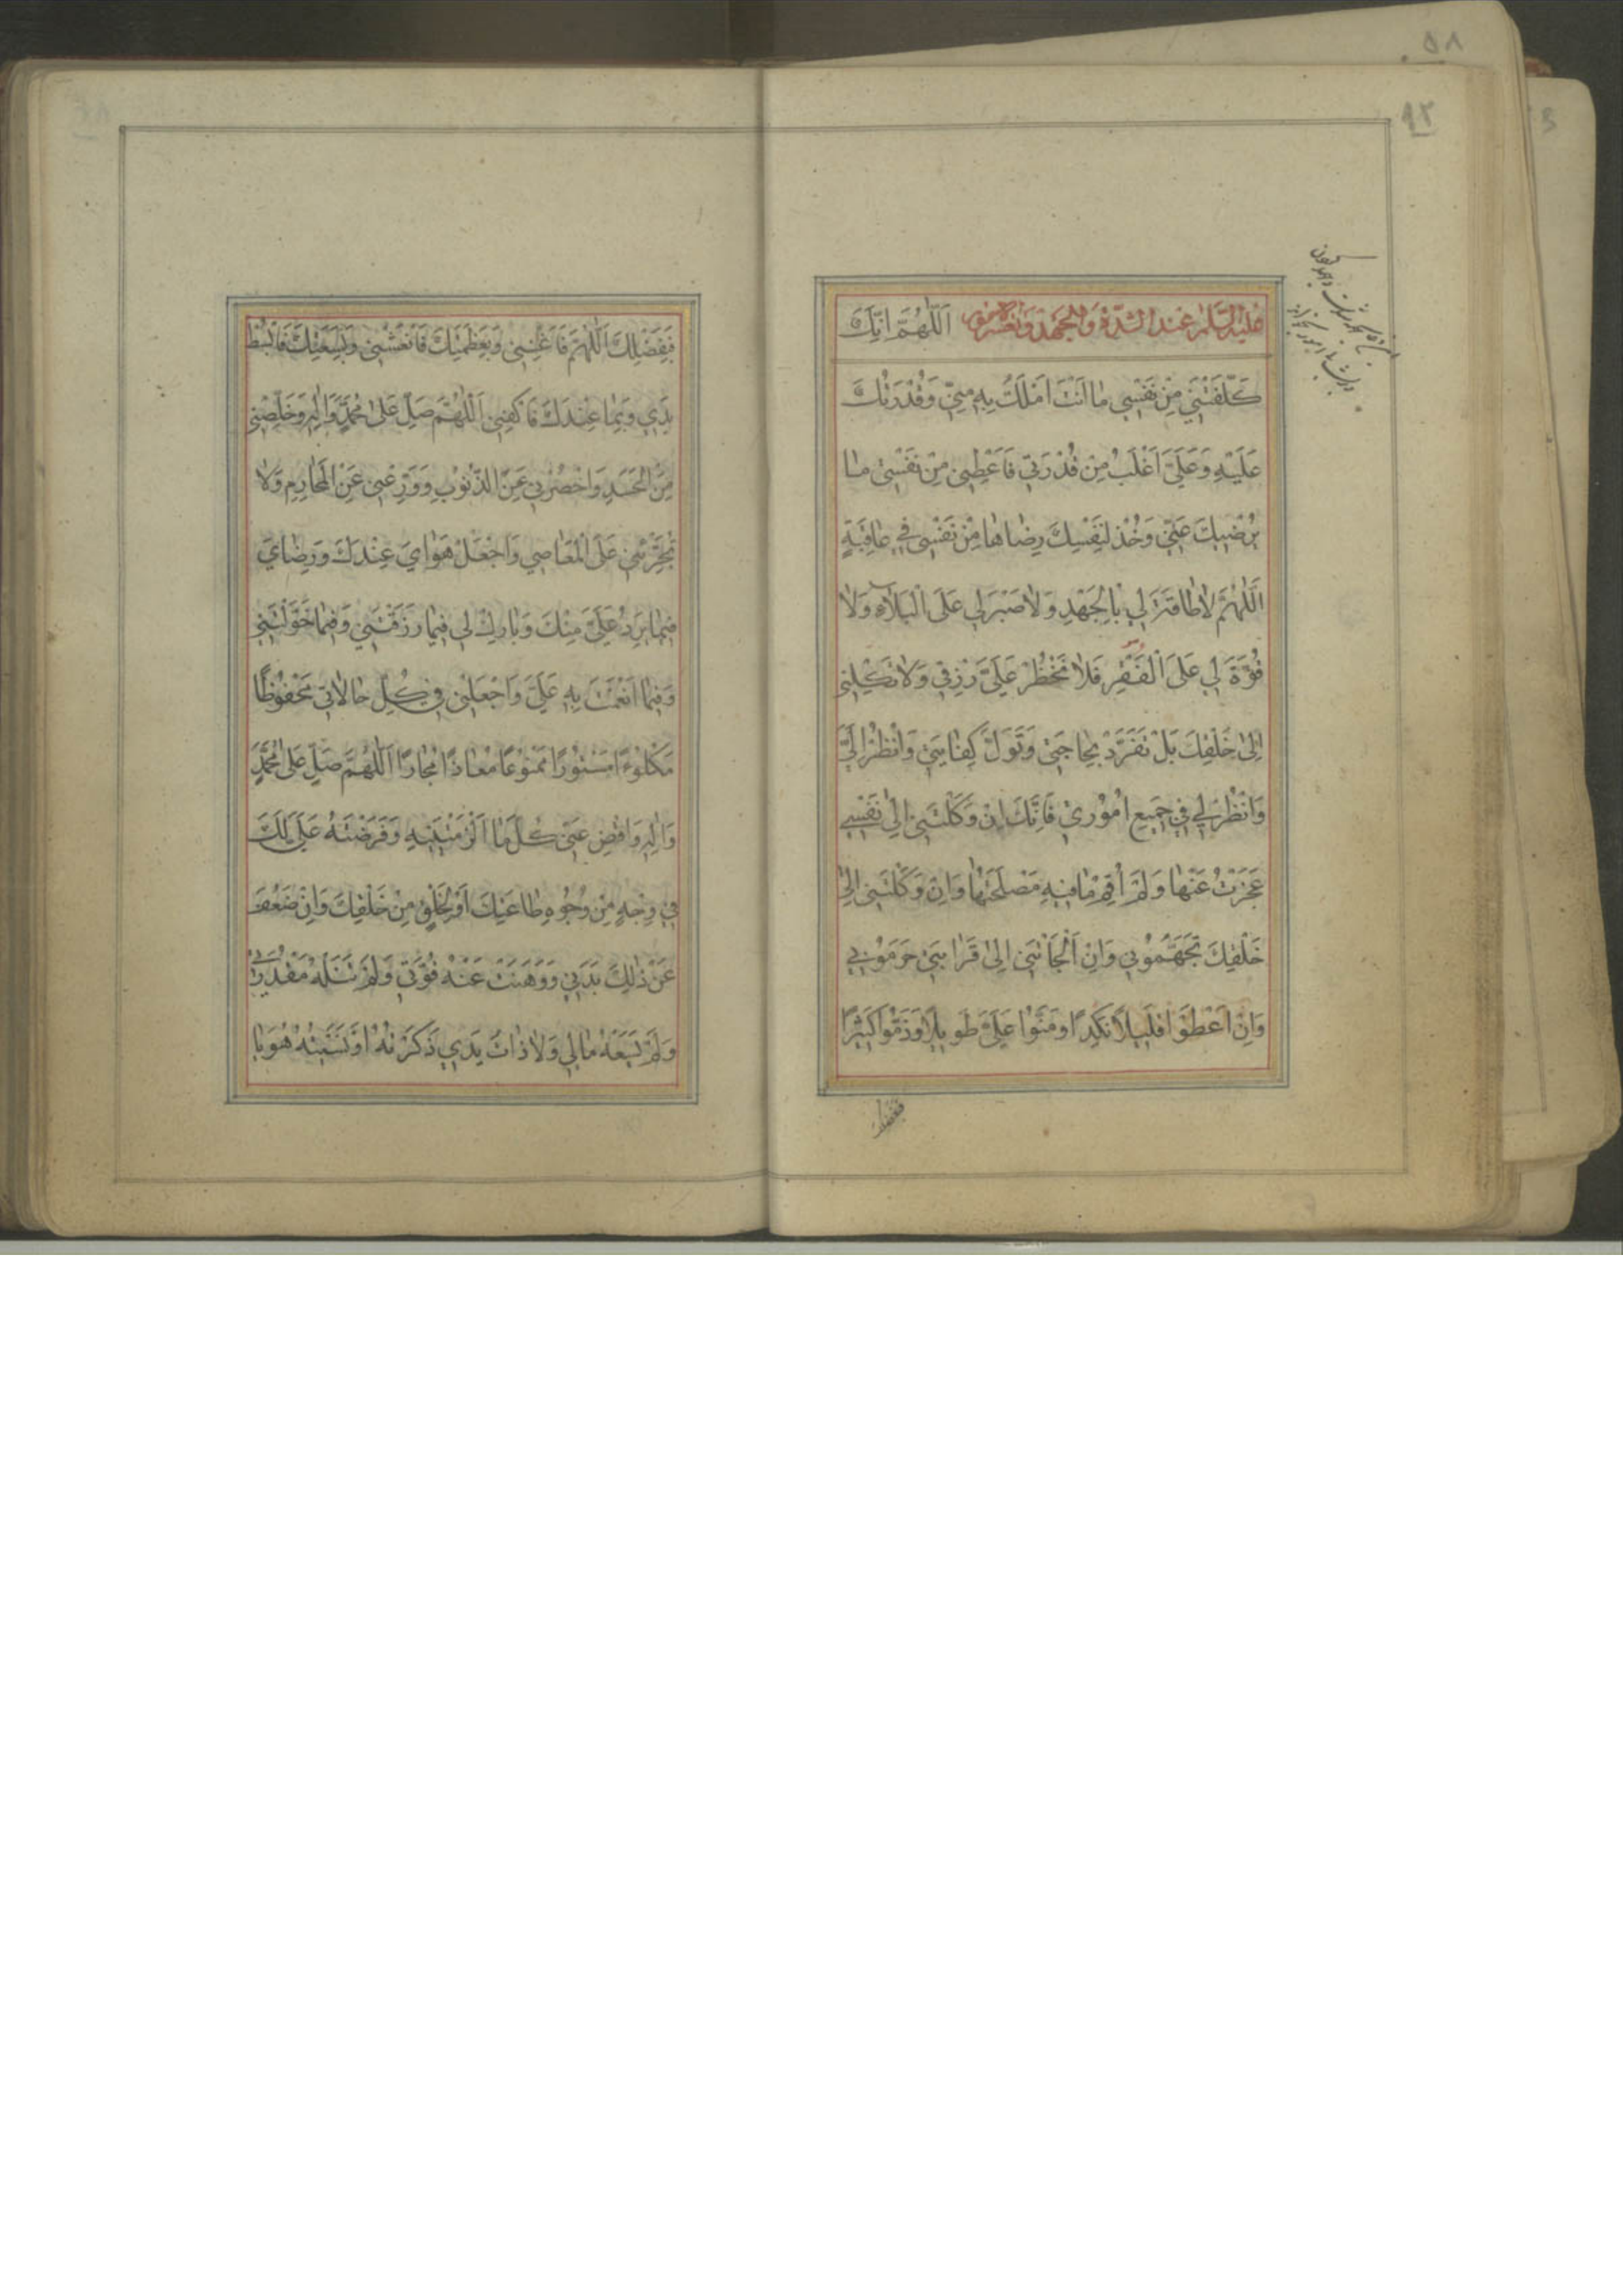 عليه السلام عند الشدة والجهد وتعسر الامور اَللّٰهُمَّ اِنَّكَ
كَلَّفْتَنِي مِنْ نَفْسِي مٰا اَنْتَ اَمْلَكُ بِهِ مِنِّي وَقُدْرَتُكَ
عَلَيْهِ وَعَلَيَّ اَغْلَبُ مِنْ قُدْرَتِي فَاَعْطِنِي مِنْ نَفْسِي مٰا
يُرْضِيكَ عَنِّي وَخُذْ لِنَفْسِكَ رِضٰاهٰا مِنْ نَفْسِي فِي عٰافِيَةٍ
اَللّٰهُمَّ لاٰ طٰاقَةَ لِي بِالْجَهْدِ وَلاٰ صَبْرَ لِي عَلَى الْبَلاٰءِ وَلاٰ
قُوَّةَ لِي عَلَى الْفَقْرِ فَلاٰ تَحْظُرْ عَلَيَّ رِزْقِي وَلاٰ تَكِلْنِي
اِلىٰ خَلْقِكَ بَلْ تَفَرَّدْ بِحٰاجَتِي وَتَوَلَّ كِفٰايَتِي وَانْظُرْ اِلَيَّ
وَانْظُرْ لِي فِي جَمِيعِ اُمُوْرِي فَاِنَّكَ اِنْ وَكَلْتَنِي اِلىٰ نَفْسِي
عَجَزْتُ عَنْهٰا وَلَمْ اُقِمْ مٰا فِيهِ مَصْلَحَتُهٰا وَاِنْ وَكَلْتَنِي اِلىٰ
خَلْقِكَ تَجَهَّمُوْنِي وَاِنْ اَلْجَأْتَنِي اِلىٰ قَرٰابَتِي حَرَمُوْنِي
وَاِنْ اَعْطَوْا قَلِيلاً نَكِداً وَمَنُّوْا عَلَيَّ طَوِيلاً وَذَمُّوْا كَثِيْراً
فبفضلك
فَبِفَضْلِكَ اَللّٰهُمَّ فَاَغْنِنِي وَبِعَظَمَتِكَ فَانْعَشْنِي وَبِسَعَتِكَ فَابْسُطْ
يَدِي وَبِمٰا عِنْدَكَ فَاكْفِنِي اَللّٰهُمَّ صَلِّ عَلىٰ مُحَمَّدٍ وَاٰلِهِ وَخَلِّصْنِي
مِنَ الْحَسَدِ وَاحْصُرْنِي عَنِ الذُّنُوْبِ وَوَرِّعْنِي عَنِ الْمَحٰارِمِ وَلاٰ
تُجَرِّئْنِي عَلَى الْمَعٰاصِي وَاجْعَلْ هَوٰايَ عِنْدَكَ وَرِضٰايَ
فِيمٰا يَرِدُ عَلَيَّ مِنْكَ وَبٰارِكْ لِي فِيمٰا رَزَقْتَنِي وَفِيمٰا خَوَّلْتَنِي
وَفِيمٰا اَنْعَمْتَ بِهِ عَلَيَّ وَاجْعَلْنِي فِي كُلِّ حٰالاٰتِي مَحْفُوْظًا
مَكْلُوْءًا مَسْتُوْرًا مَمْنُوْعًا مُعٰاذًا مُجٰارًا اَللّٰهُمَّ صَلِّ عَلىٰ مُحَمَّدٍ
وَاٰلِهِ وَاقْضِ عَنِّي كُلَّ مٰا اَلْزَمْتَنِيهِ وَفَرَضْتَهُ عَلَيَّ لَكَ
فِي وَجْهٍ مِنْ وُجُوْهِ طٰاعَتِكَ اَوْ لِخَلْقٍ مِنْ خَلْقِكَ وَاِنْ ضَعُفَ
عَنْ ذٰلِكَ بَدَنِي وَوَهَنَتْ عَنْهُ قُوَّتِي وَلَمْ تَنَلْهُ مَقْدُرَتِي
وَلَمْ يَسَعْهُ مٰالِي وَلاٰ ذٰاتُ يَدِي ذَكَرْتُهُ اَوْ نَسِيتُهُ هُوَ يٰا